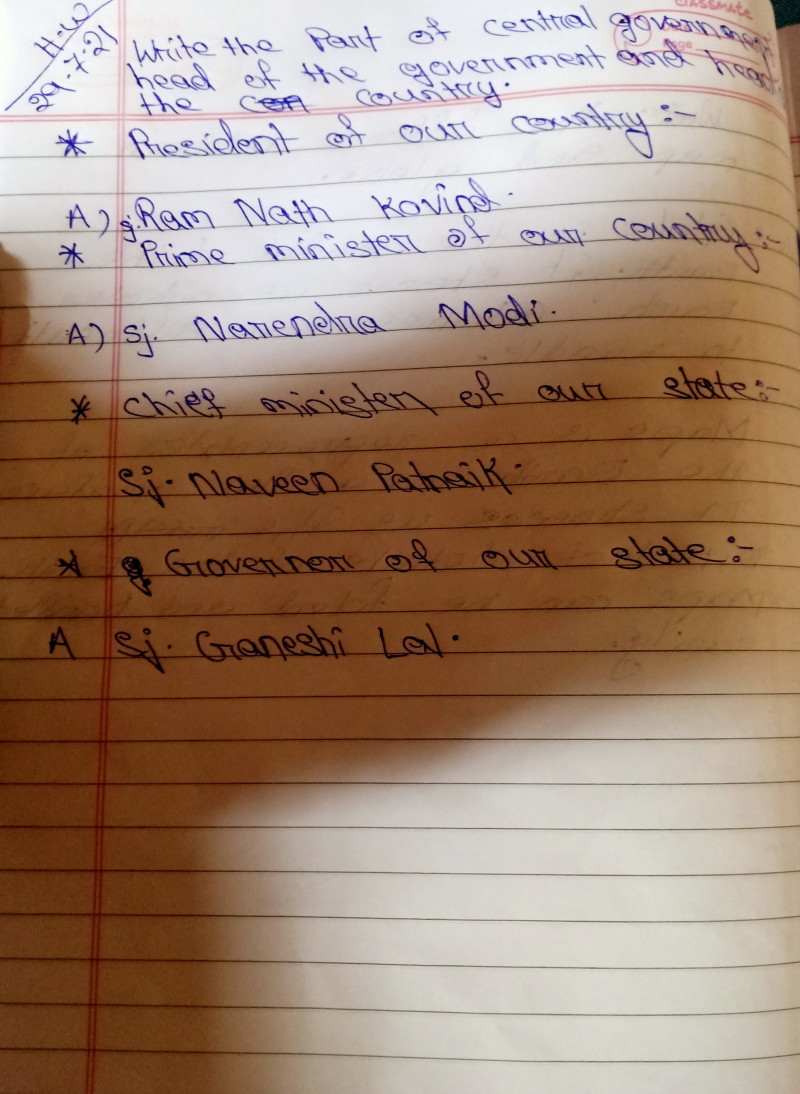 CLASSMATE
H.W
29.7.21
Write the Part of central government
head of the government and head
the country.
* President of our country :-
A) sj. Ram Nath Kovind.
* Prime minister of our country :-
A) Sj. Narendra Modi.
* Chief minister of our state :-
Sj. Naveen Patnaik.
* Governor of our state :-
A Sj. Ganeshi Lal.